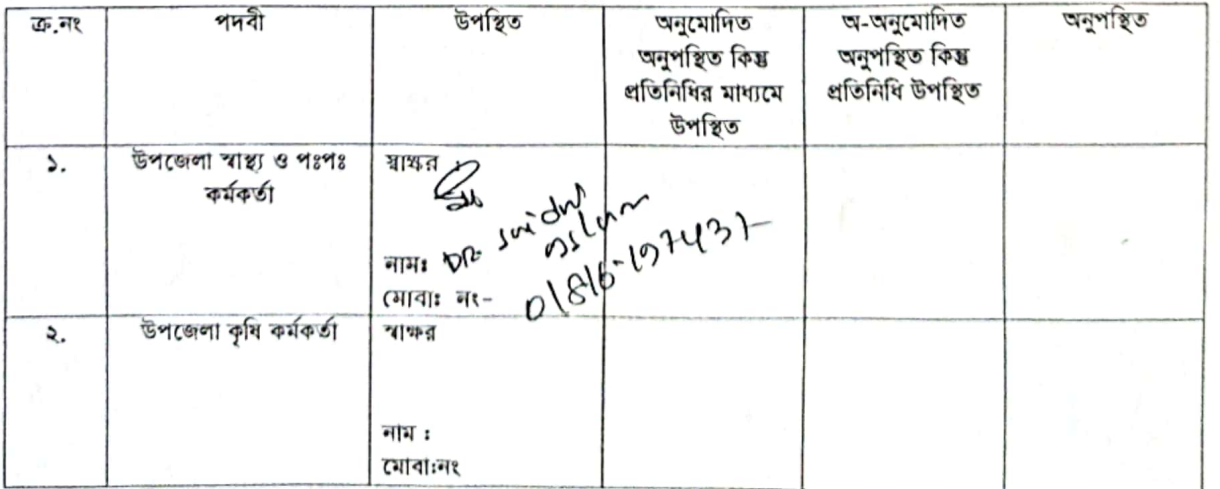 ক্র.নং পদবী উপস্থিত অনুমোদিত অনুপস্থিত কিন্তু প্রতিনিধির মাধ্যমে উপস্থিত অ-অনুমোদিত অনুপস্থিত কিন্তু প্রতিনিধি উপস্থিত অনুপস্থিত
১. উপজেলা স্বাস্থ্য ও পঃপঃ কর্মকর্তা স্বাক্ষর
নামঃ DR.
মোবাঃ নং- 01816-197431
২. উপজেলা কৃষি কর্মকর্তা স্বাক্ষর
নাম :
মোবা:নং